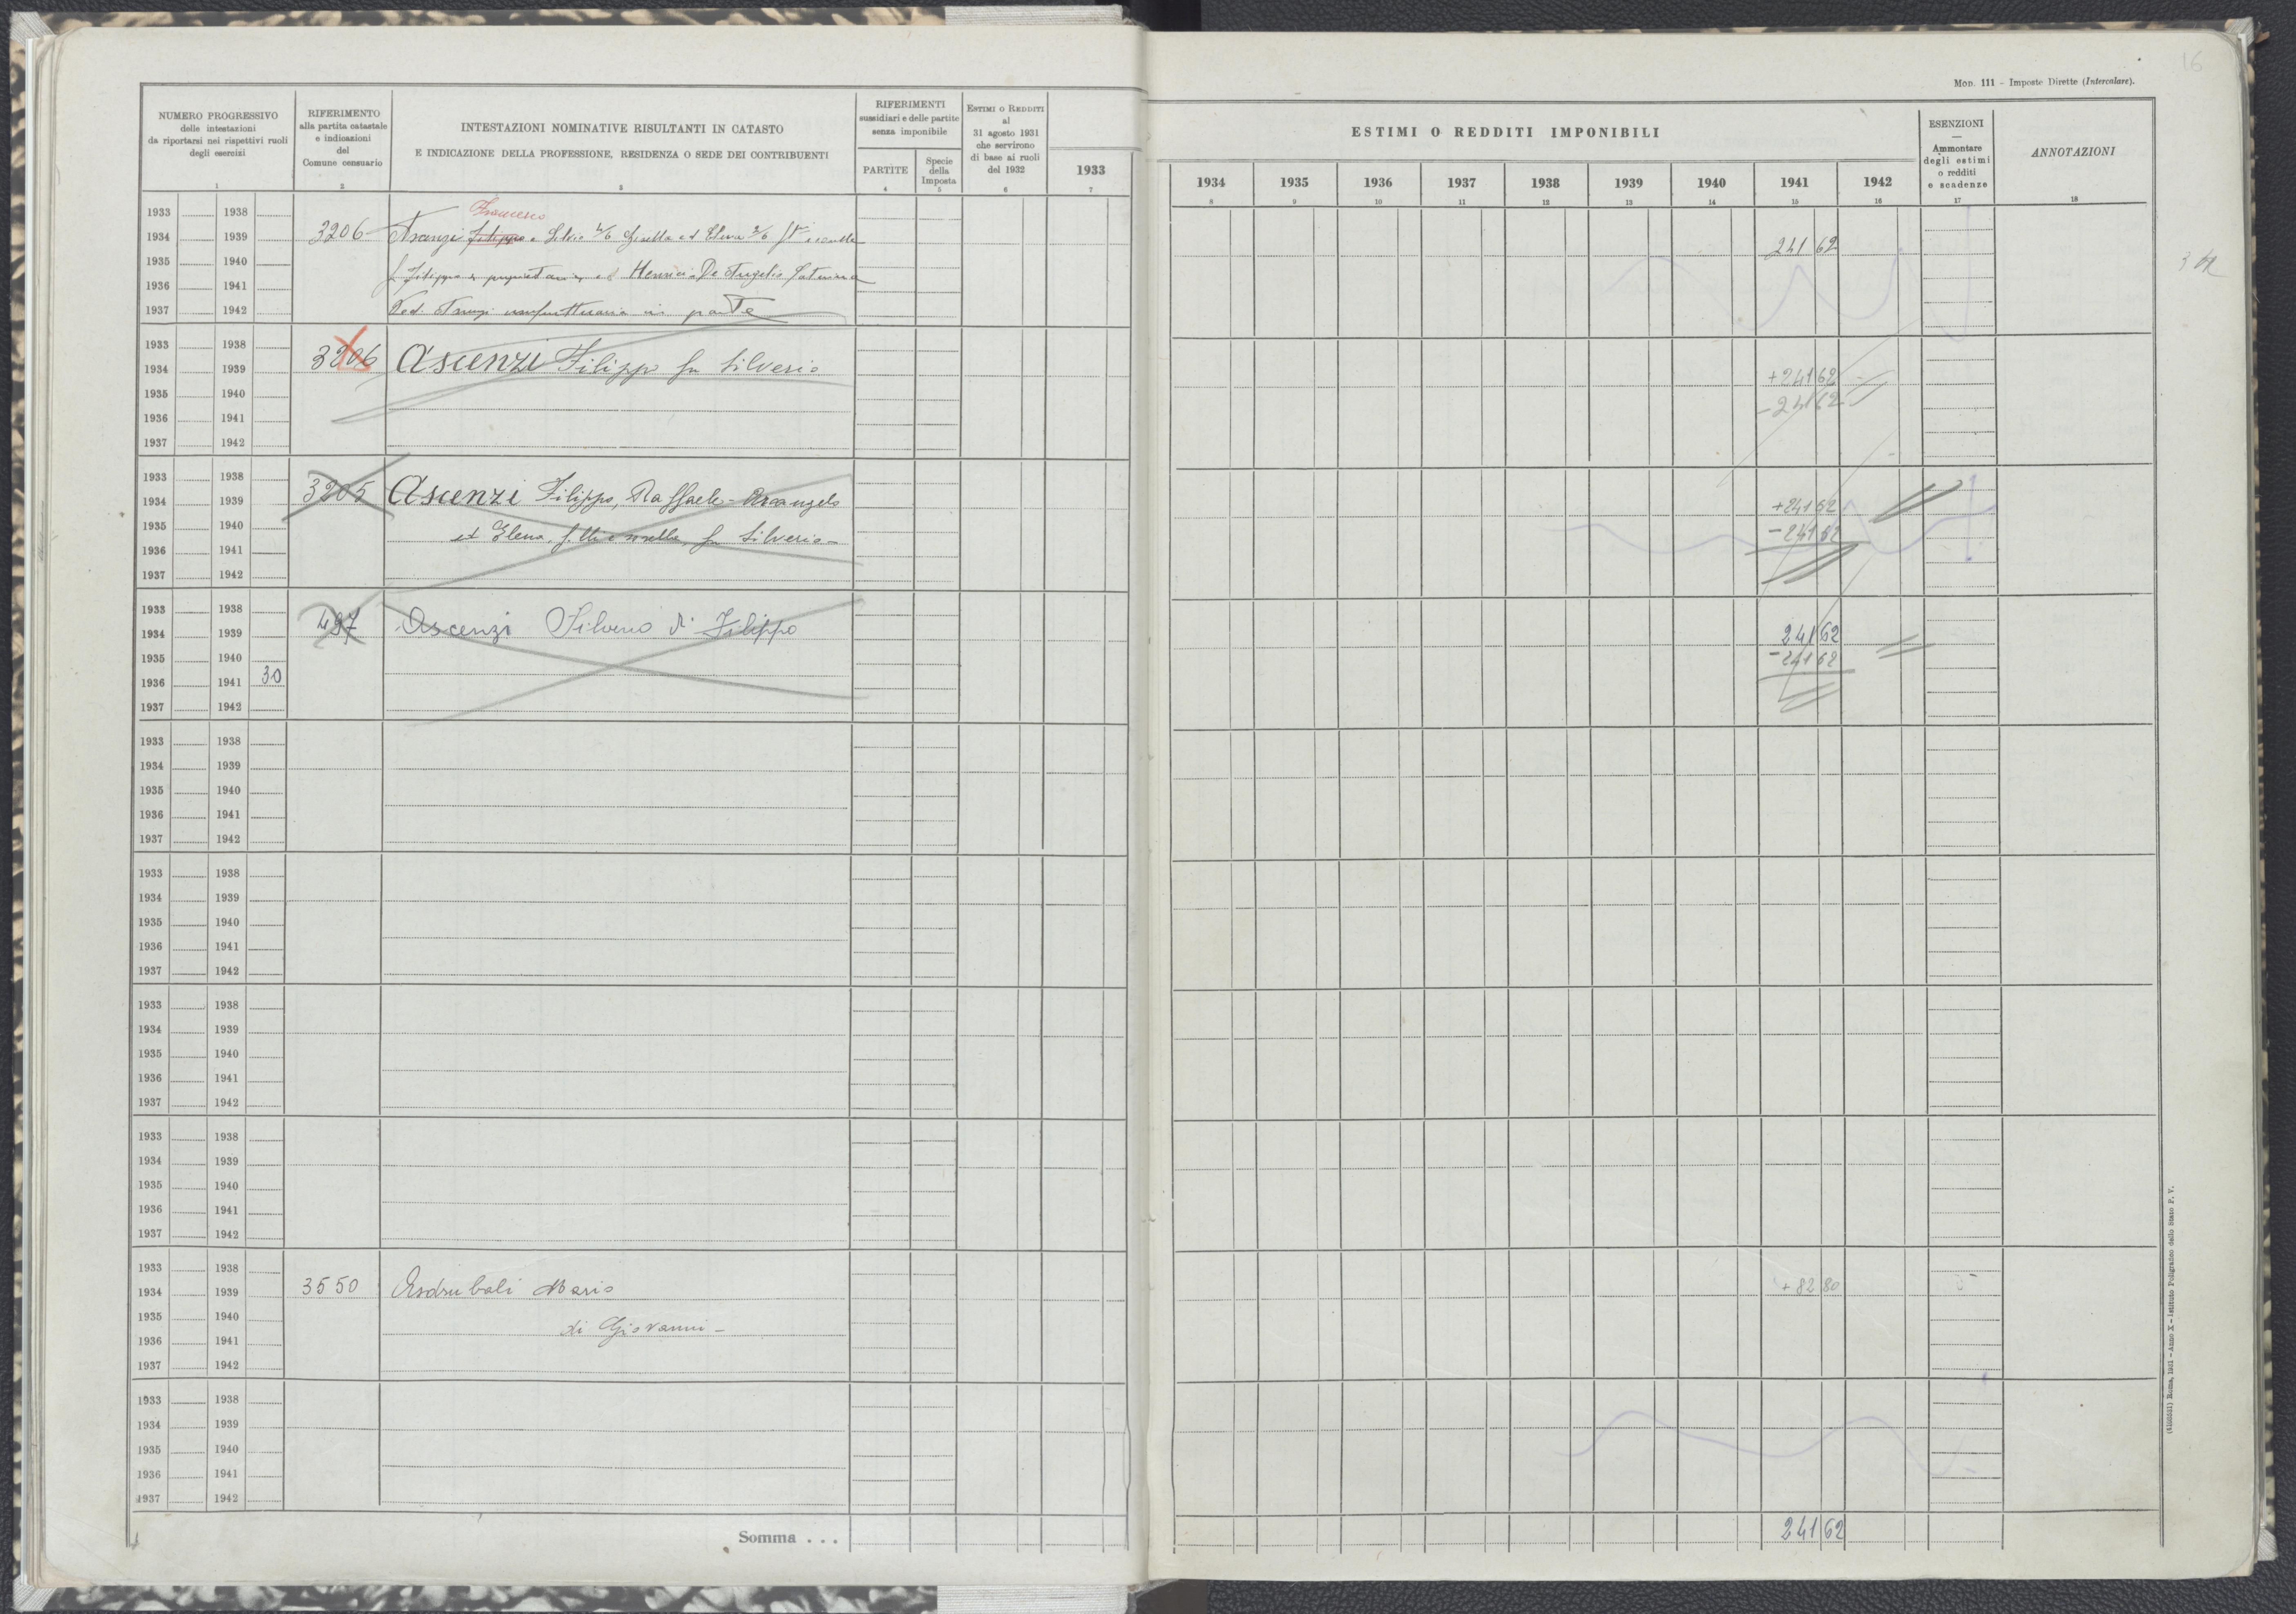 16
Mod. 111 – Imposte Dirette (Intercalare).
NUMERO PROGRESSIVO
delle intestazioni
da riportarsi nei rispettivi ruoli
degli esercizi
1
RIFERIMENTO
alla partita catastale
e indicazioni
del
Comune censuario
2
INTESTAZIONI NOMINATIVE RISULTANTI IN CATASTO
E INDICAZIONE DELLA PROFESSIONE, RESIDENZA O SEDE DEI CONTRIBUENTI
3
RIFERIMENTI
sussidiari e delle partite
senza imponibile
PARTITE
4
Specie
della
Imposta
5
ESTIMI O REDDITI
al
31 agosto 1931
che servirono
di base ai ruoli
del 1932
6
1933
7
ESTIMI O REDDITI IMPONIBILI
1934 1935 1936 1937 1938 1939 1940 1941 1942
8 9 10 11 12 13 14 15 16
ESENZIONI
—
Ammontare
degli estimi
o redditi
e scadenze
17
ANNOTAZIONI
18
Francesco
1933 1938
1934 1939 3206 Filippo e Silvio 4/6 Gisella ed Elena 2/6 241 62
1935 1940 fu Filippo proprietari ed De Angelis Caterina
1936 1941
1937 1942 Ved. usufruttuaria in parte
1933 1938
1934 1939 3206 Ascenzi Filippo fu Silverio +241 62
1935 1940 -241 62
1936 1941
1937 1942
1933 1938
1934 1939 3205 Ascenzi Filippo, Raffaele - Arcangelo +241 62
1935 1940 et Elena, f.lli e sorella, fu Silverio - -241 62
1936 1941
1937 1942
1933 1938
1934 1939 497 Ascenzi Silverio di Filippo 241 62
1935 1940 -241 62
1936 1941 30
1937 1942
1933 1938
1934 1939
1935 1940
1936 1941
1937 1942
1933 1938
1934 1939
1935 1940
1936 1941
1937 1942
1933 1938
1934 1939
1935 1940
1936 1941
1937 1942
1933 1938
1934 1939
1935 1940
1936 1941
1937 1942
1933 1938
1934 1939 3550 Asdrubali Mario +82 80
1935 1940 di Giovanni -
1936 1941
1937 1942
1933 1938
1934 1939
1935 1940
1936 1941
1937 1942
Somma . . . 241 62
Roma, 1931 – Anno X – Istituto Poligrafico dello Stato P. V.